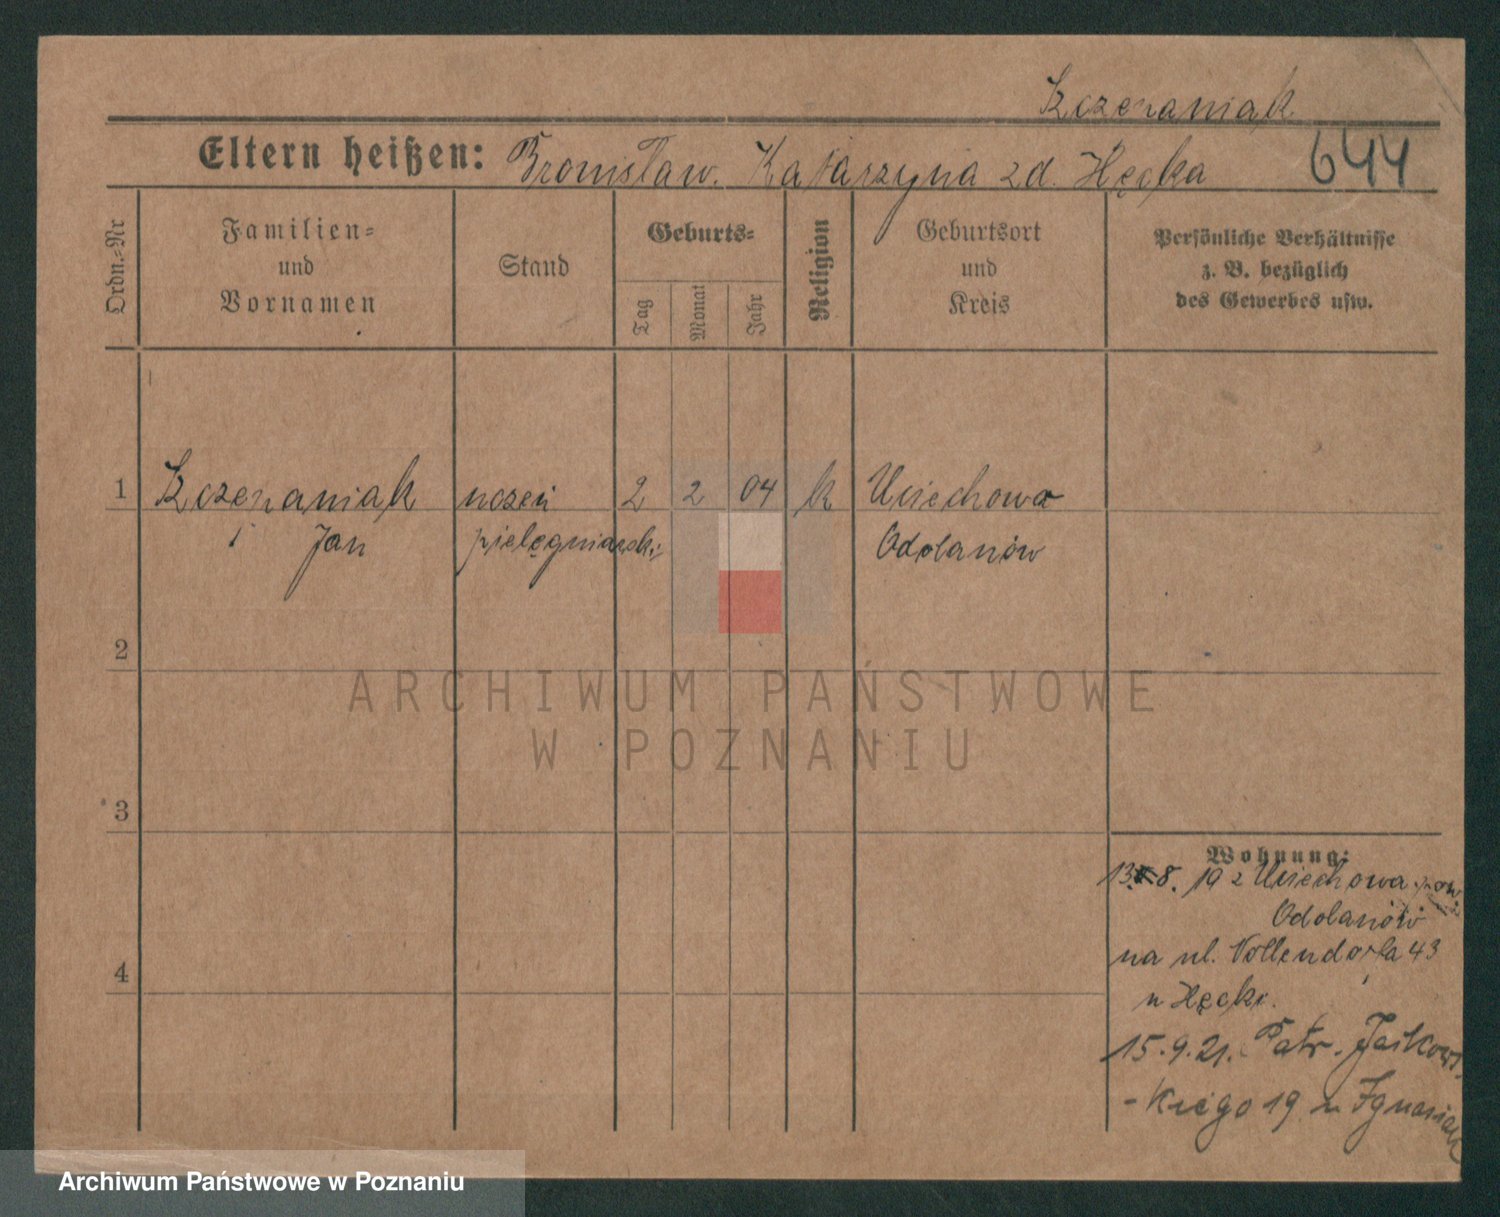 Szczenaniak
Eltern heißen: Bronisław. Katarzyna z d. Hęcka 644
Ordn.-Nr
Familien-
und
Vornamen
Stand
Geburts-
Tag
Monat
Jahr
Religion
Geburtsort
und
Kreis
Persönliche Verhältnisse
z. B. bezüglich
des Gewerbes usw.
1 uczeń 2 2 04 k Uciechowa
Jan pielęgniarski Odolanów
2
ARCHIWUM PAŃSTWOWE
W POZNANIU
3
Wohnung:
8. 19 z Uciechowa pow.
Odolanów
na ul. Vollendorfa 43
4
u Hęcki.
15.9.21. Patr. Jackows-
-kiego 19 u Ignasiak
Archiwum Państwowe w Poznaniu